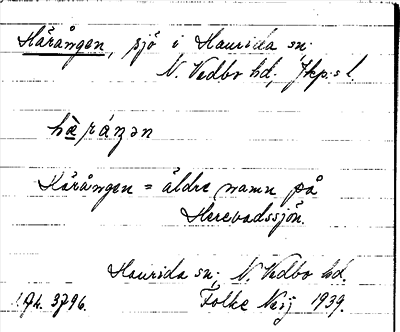 Härången, sjö i Haurida sn.
N. Vedbo hd, Jkp:s l.
hä̀ráŋən
Härången = äldre namn på
Herebadssjön.
Haurida sn. N. Vedbo hd.
Folke Neij 1939.